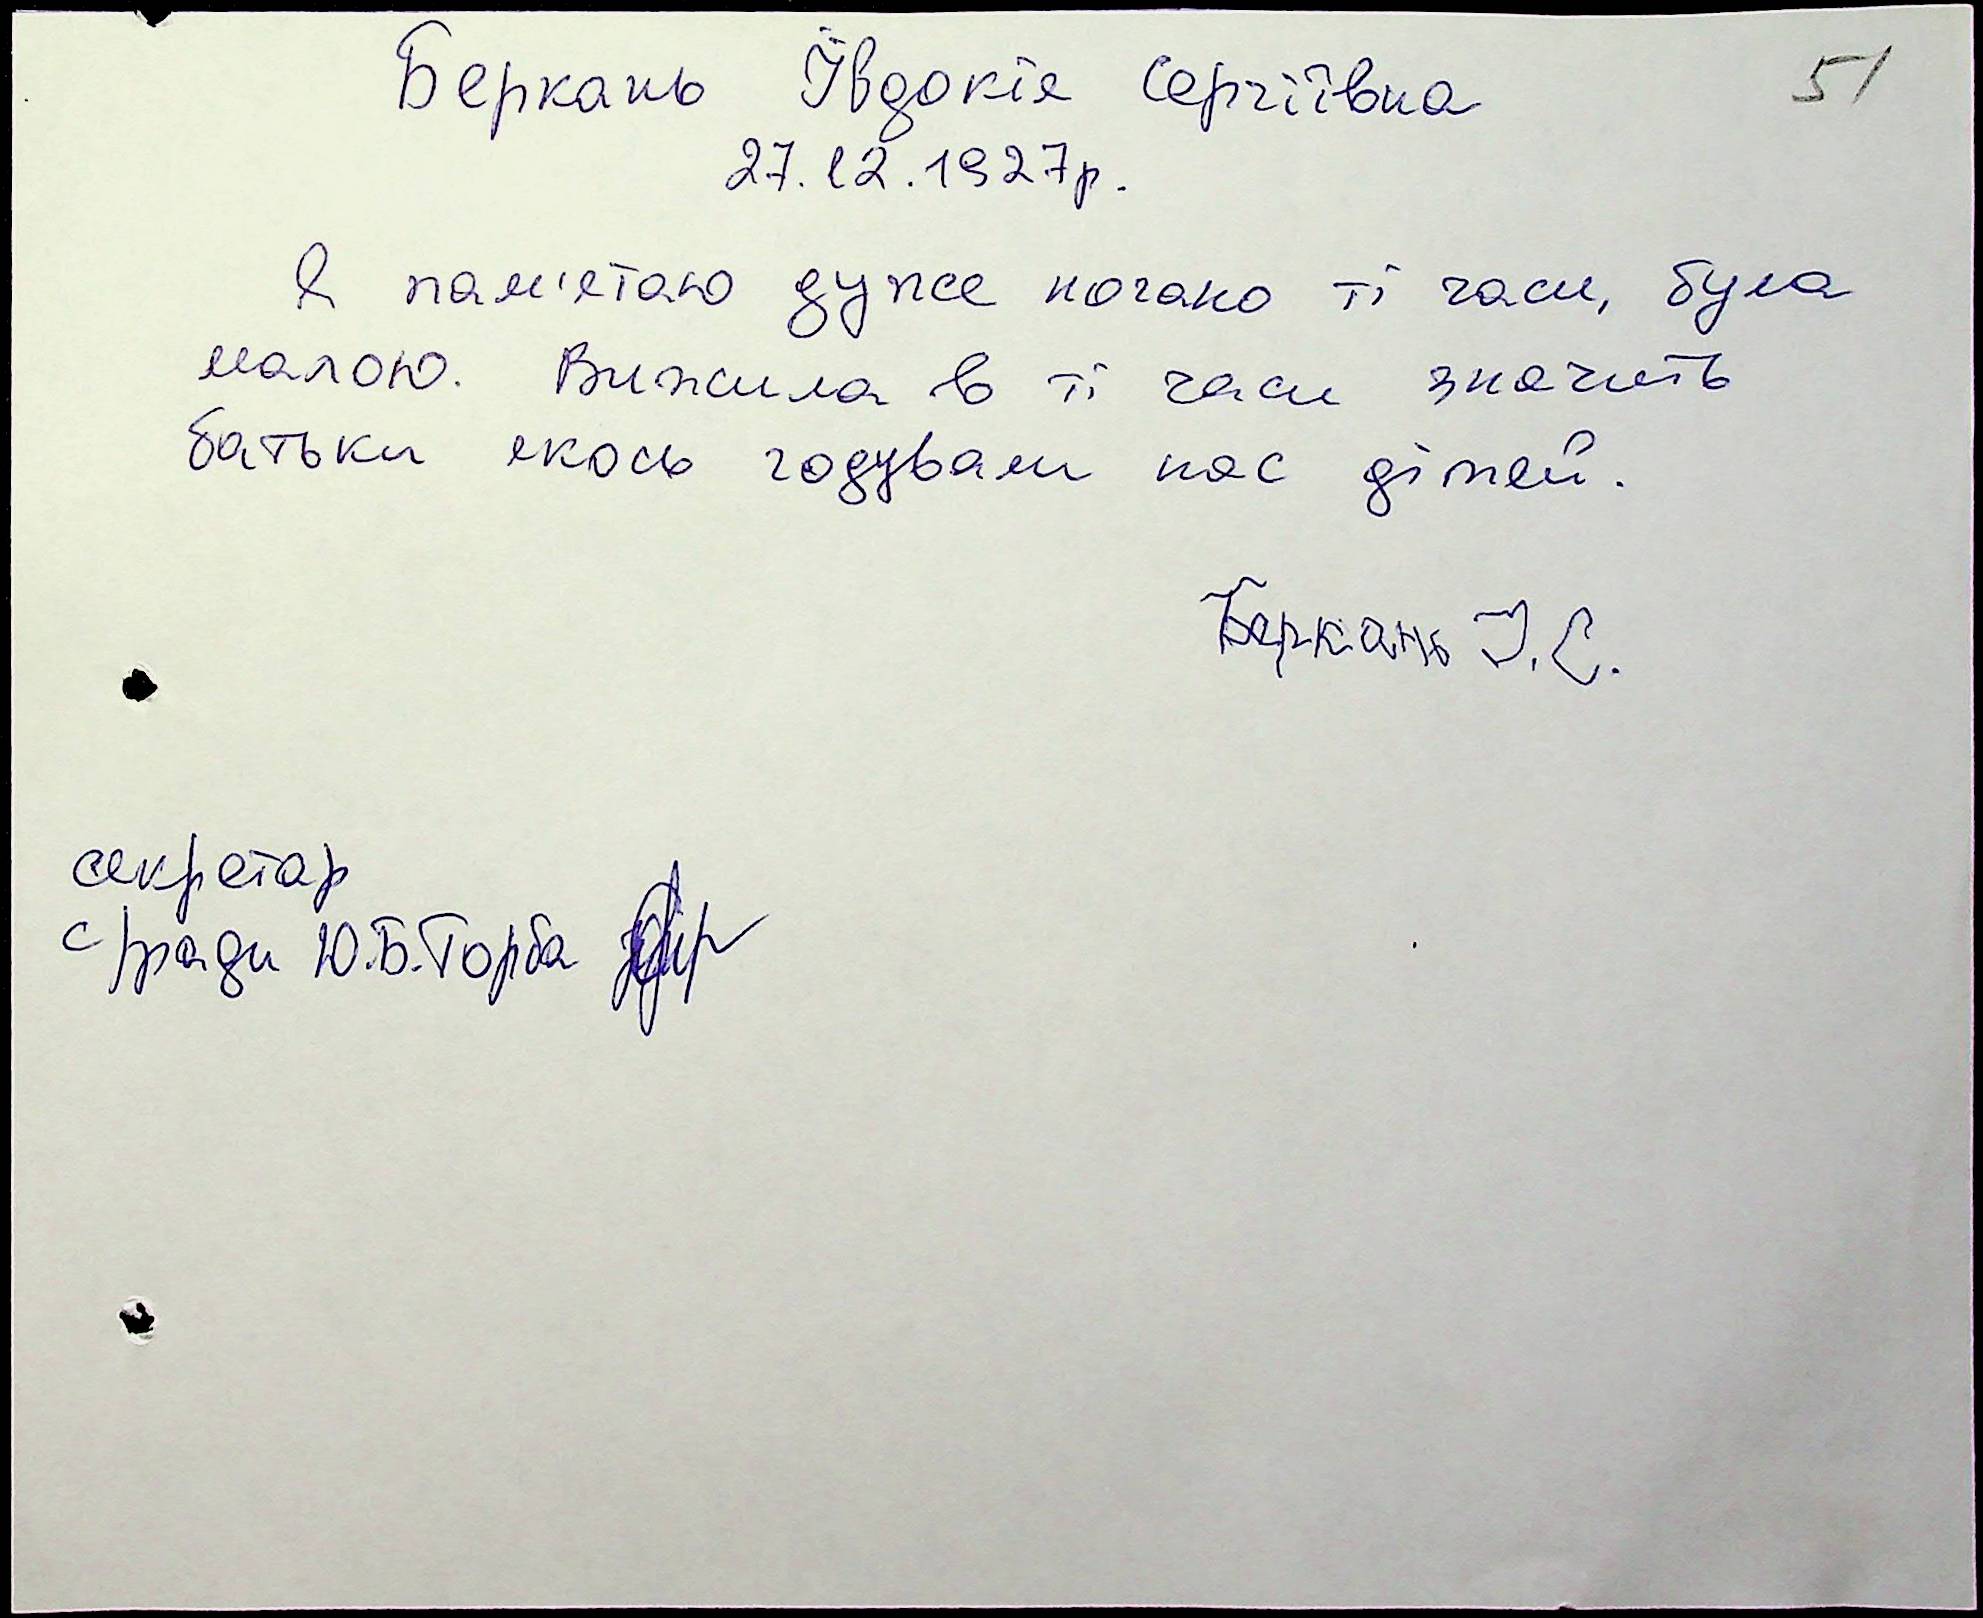 Беркань Ївдокія Сергіївна
51
27.12.1927р.
Я пам'ятаю дуже погано ті часи, була
малою. Вижила в ті часи значить
батьки якось годували нас дітей.
Беркань Ї.С.
секретар
с/ради Ю.Б.Горба